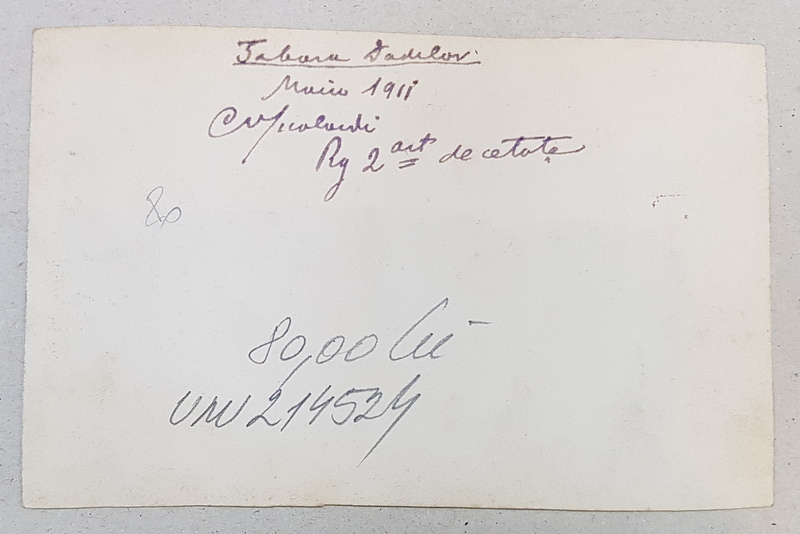 Tabara Dadilov
Maiu 1911
Rg 2 art de cetate
80
80,00 lei
UNV 214524